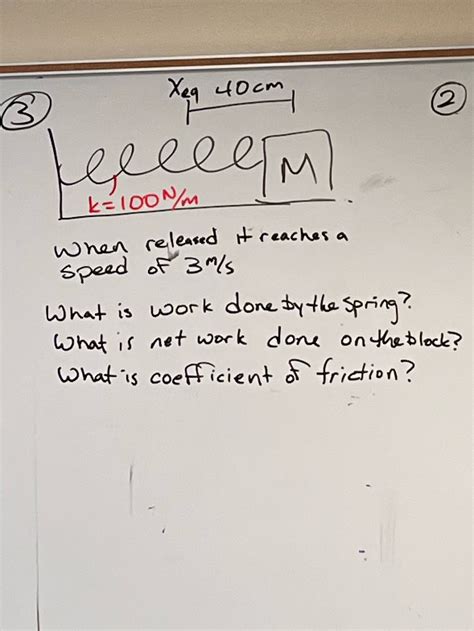 ③ Xeq 40cm ②
M
k=100N/m
When released it reaches a
speed of 3 m/s
What is work done by the spring?
What is net work done on the block?
What is coefficient of friction?